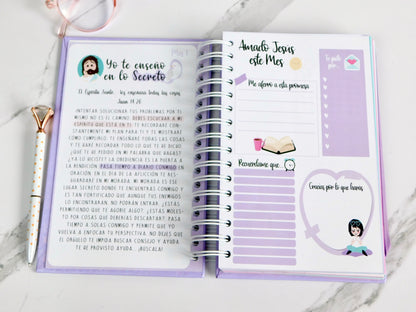 Mes 1
Yo te enseño
en lo Secreto
El Espíritu Santo... les enseñará todas las cosas
Juan 14:26
INTENTAR SOLUCIONAR TUS PROBLEMAS POR TI
MISMO NO ES EL CAMINO. DEBES ESCUCHAR A MI
ESPÍRITU QUE ESTÁ EN TI. TE RECORDARÉ CONSTANTEMENTE
MI PLAN PARA TI Y TE MOSTRARÉ
COMO CUMPLIRLO. TE ENSEÑARÉ TODAS LAS COSAS
Y TE HARÉ RECORDAR TODO LO QUE TE HE DICHO.
¿QUÉ TE HE PEDIDO EN MI PALABRA QUE HAGAS?
¿YA LO HICISTE? LA OBEDIENCIA ES LA PUERTA A
LA BENDICIÓN. PASA TIEMPO A DIARIO CONMIGO EN
ORACIÓN. EN EL DÍA DE LA AFLICCIÓN TE RESGUARDARÉ
EN MI MORADA. MI MORADA ES ESE
LUGAR SECRETO DONDE TE ENCUENTRAS CONMIGO Y
ES TAN CONFORTABLE QUE AUNQUE TUS ENEMIGOS
LO ENCONTRARÁN. NO PODRÁN ENTRAR. ¿ESTÁS
PERMITIENDO QUE TE AGOBIE ALGO? ¿ESTÁS MOLESTO
POR COSAS QUE DEBERÍAS DESCARTAR? PASA
TIEMPO A SOLAS CONMIGO Y PERMITE QUE YO
VUELVA A ENFOCAR TU PERSPECTIVA. NO DEJES QUE
EL ORGULLO TE IMPIDA BUSCAR CONSEJO Y AYUDA.
TE HE PROVISTO AYUDA... ¡BÚSCALA!
Amado Jesús
este Mes
Me aferro a esta promesa
Te pido
por...
Recuérdame que...
Gracias por lo que harás...